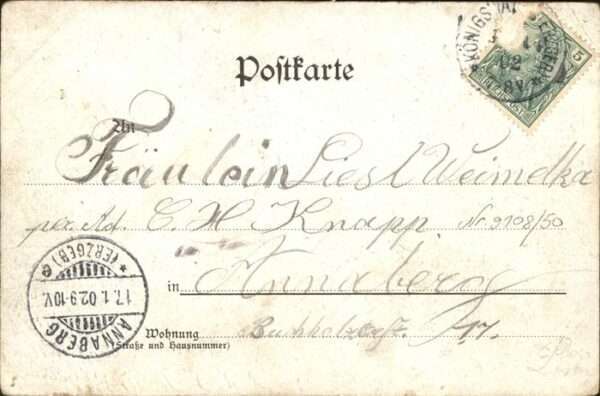 Postkarte
An
Fräulein Liesl Weimelka
per. Ad. C. H. Knapp Nr 9108/50
in Annaberg
Wohnung Buchholzerst. 17.
(Straße und Hausnummer)
ANNABERG
17.1.02.9-10V.
* (ERZGEB) e
KÖNIGS
02
5